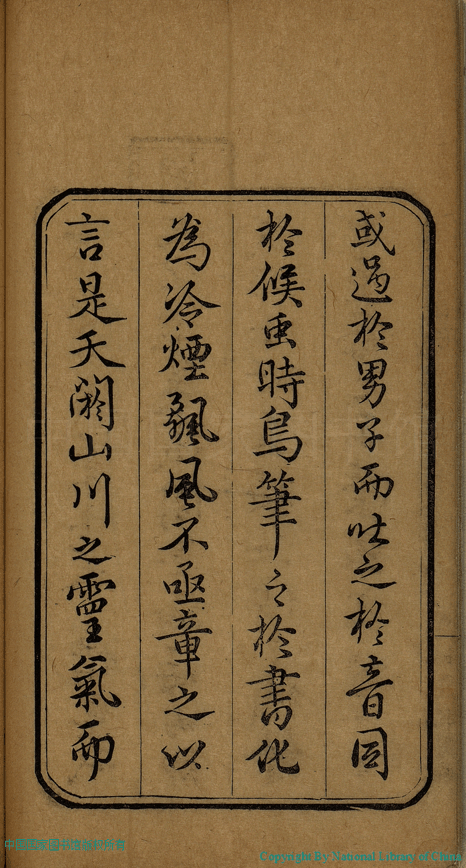 或過於男子而吐之於音同
於候虫時鳥筆之於書化
為冷煙飄風不亟章之以
言是夭閼山川之靈氣而
Copyright By National Library of China